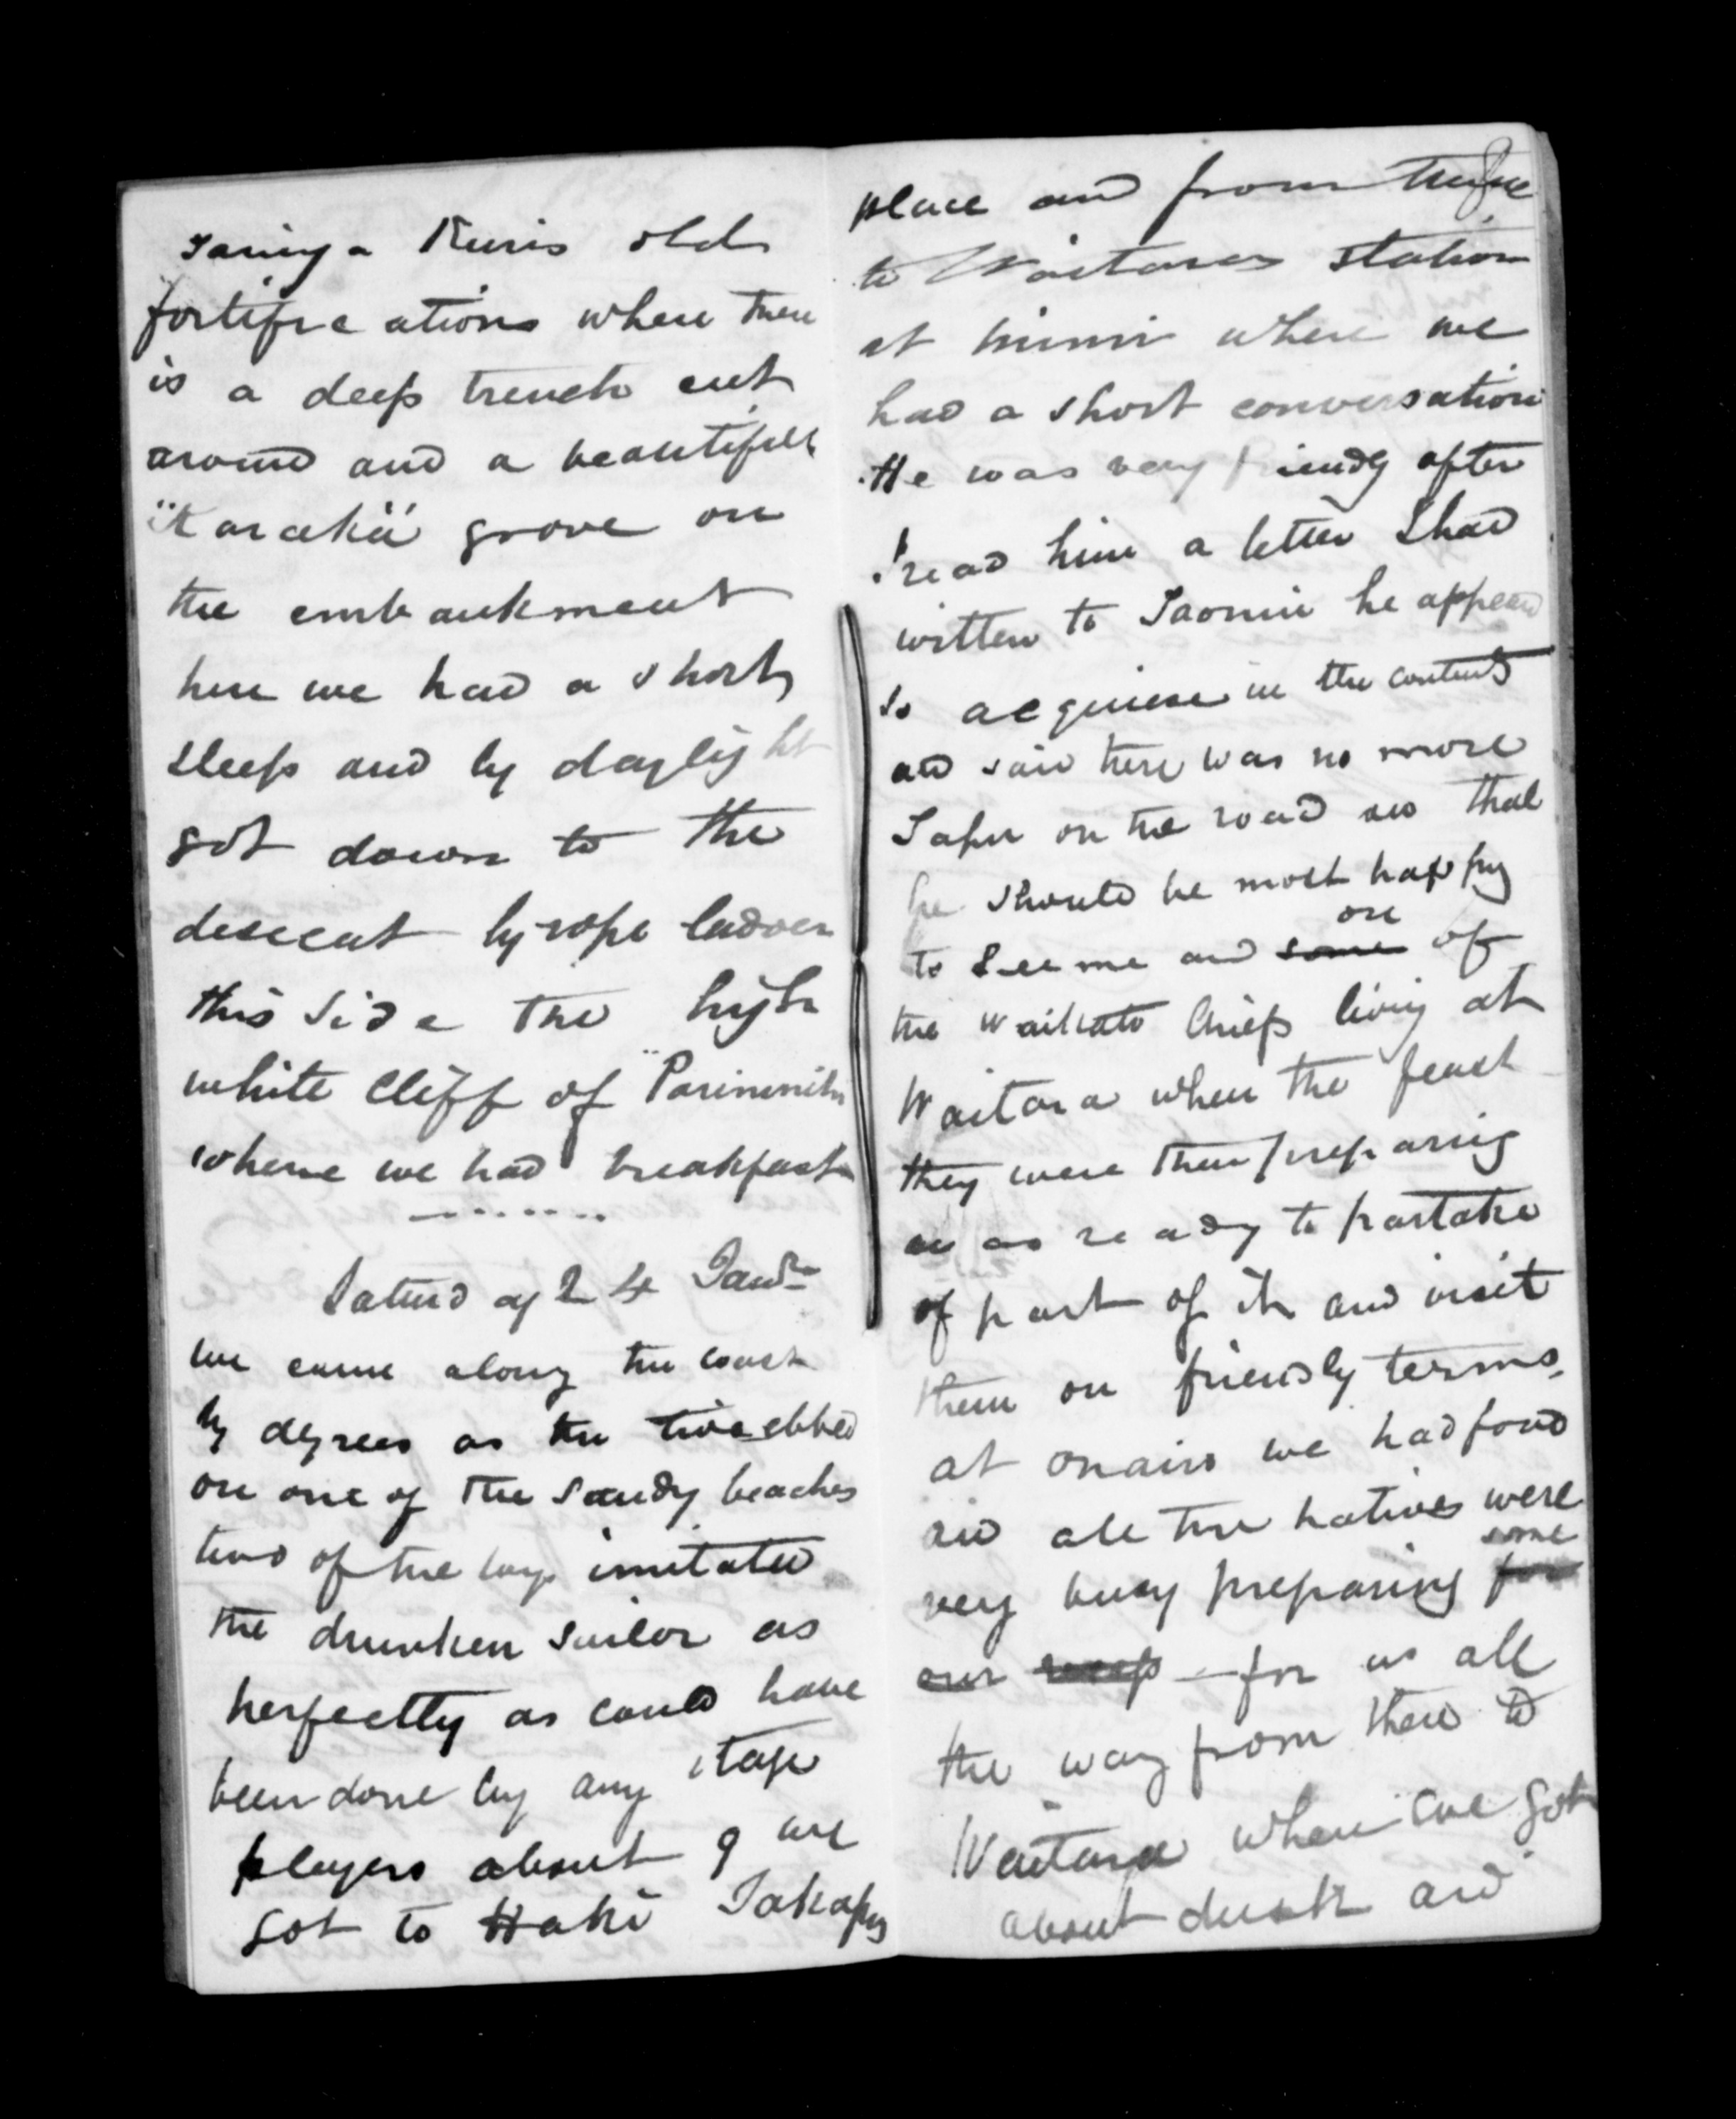 Taringa Kuris old
fortifications where there
is a deep trench cut
around and a beautifull
"Karaka" grove on
the embankment
here we had a short
sleep and by daylight
got down to the
descent by rope ladder
this side the high
white cliff of "Parininihi
where we had breakfast
Saturday 24 Jany
we came along the coast
by degrees as the tide ebbed
on one of the sandy beaches
two of the boys imitated
the drunken sailor as
perfectly as could have
been done by any stage
players about 9 we
got to Haki Takapus
place and from thence
to Waitaras station
at Mimi where we
had a short conversation
He was very friendly after
I read him a letter I had
written to Taonui he appeared
to acquiesce in the contents
and said there was no more
Tapu on the road and that
he should be most happy
to see me and some one of
the Waikato Chiefs living at
Waitara when the feast
they were then preparing
was ready to partake
of part of it and visit
them on friendly terms.
at onairo we had food
and all the natives were
very busy preparing for some
our for us all
the way from there to
Waitara where we got
about dusk and